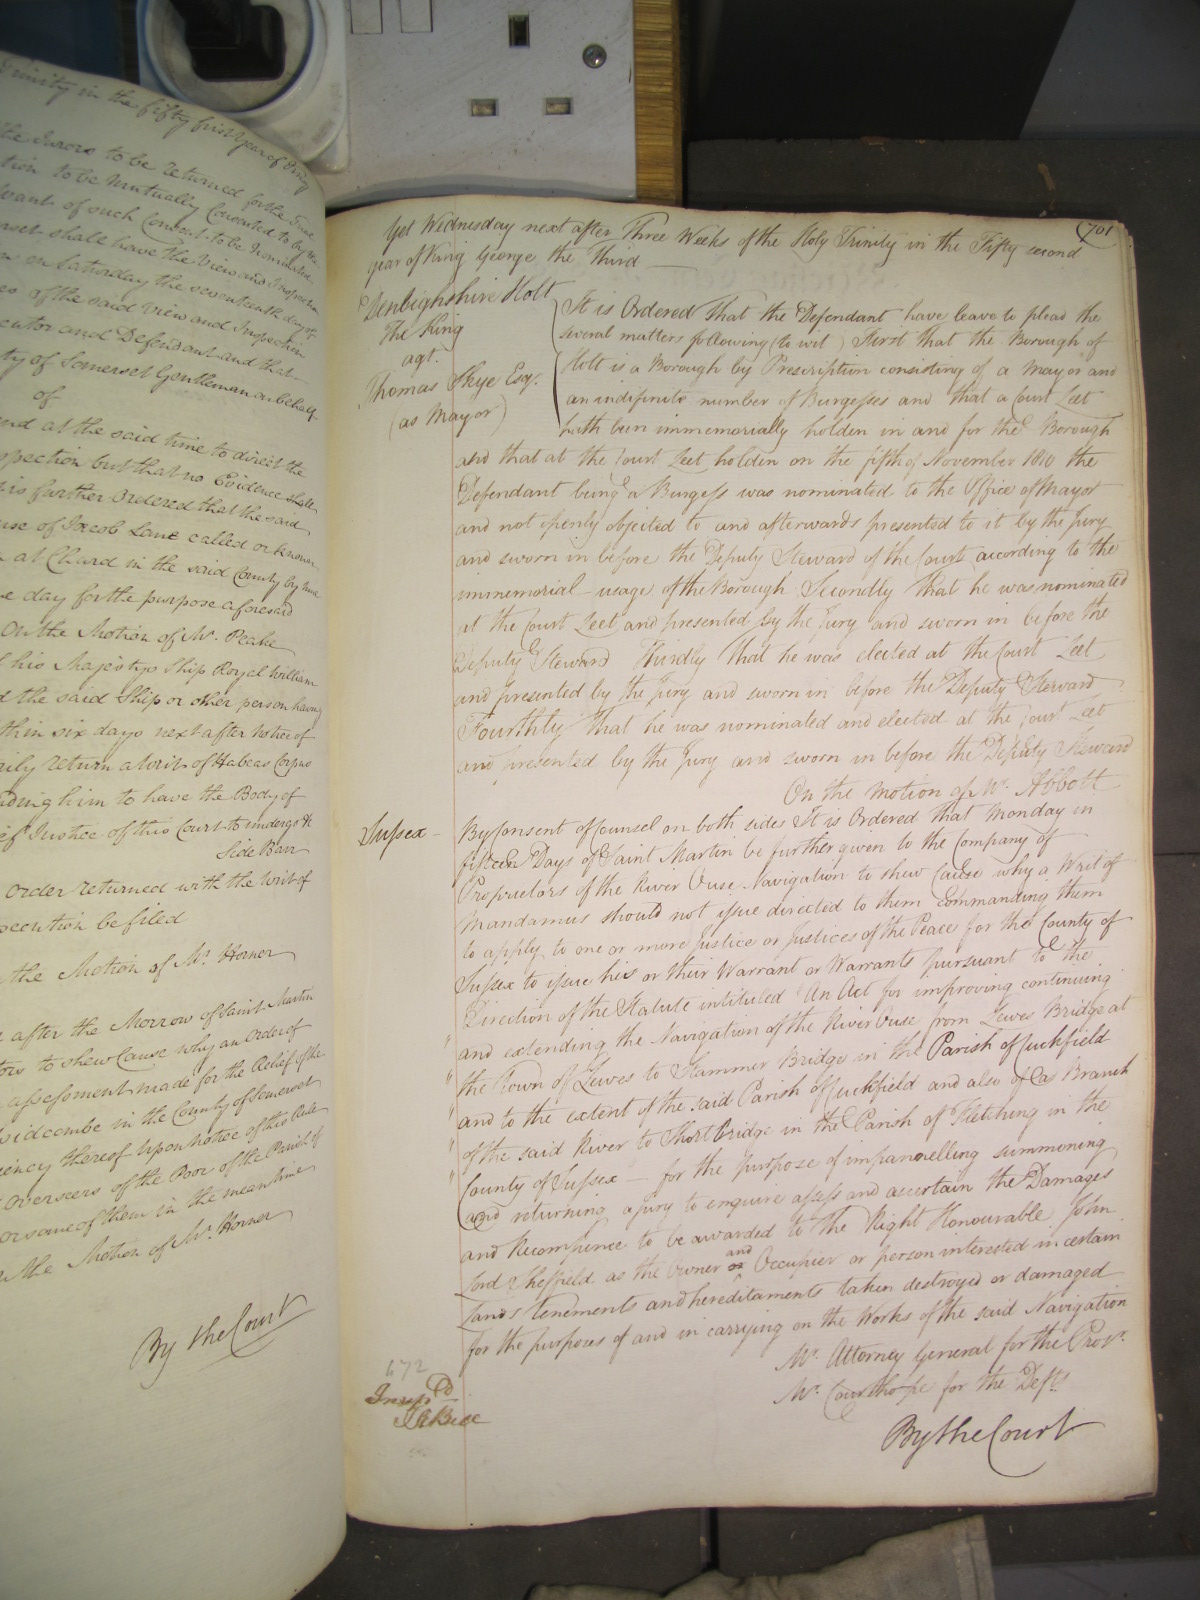 Trinity in the fifty first year of King
the Jurors to be returned for the same
tion to be mutually consented to by the
want of such Consent to be Nominated
shall have the View and Inspection
on Saturday the seventeenth day
of the said View and Inspection
cutor and Defendant and that
ty of Somerset Gentleman on behalf
of
nd at the said time to direct the
spection but that no Evidence shall
is further Ordered that the said
use of Jacob Lane called or known
at Chard in the said County by nine
e day for the purpose aforesaid
On the Motion of Mr. Peake
his Majestys Ship Royal William
d the said Ship or other person having
thin six days next after notice of
rily return a Writ of Habeas Corpus
nding him to have the Body of
ef Justice of this Court to undergo &c
Side Bar
Order returned with the Writ of
secution be filed
the Motion of Mr. Horner
after the Morrow of Saint Martin
tors to shew Cause why an Order of
assessment made for the Relief of the
idcombe in the County of Somerset
iency thereof Upon Notice of this Rule
Overseers of the Poor of the Parish of
or some of them in the meantime
the Motion of Mr. Horner
By the Court
701
Yet Wednesday next after Three Weeks of the Holy Trinity in the Fifty second
year of King George the Third
Denbighshire Holt
The King
agt.
Thomas Skye Esq.
(as Mayor)
It is Ordered That the Defendant have leave to plead the
several matters following (to wit) First that the Borough of
Holt is a Borough by Prescription consisting of a Mayor and
an indefinite number of Burgesses and that a Court Leet
hath been immemorially holden in and for the Borough
and that at the Court Leet holden on the fifth of November 1810 the
Defendant being a Burgess was nominated to the Office of Mayor
and not openly objected to and afterwards presented to it by the Jury
and sworn in before the Deputy Steward of the Court according to the
immemorial usage of the Borough Secondly that he was nominated
at the Court Leet and presented by the Jury and sworn in before the
Deputy Steward Thirdly that he was elected at the Court Leet
and presented by the Jury and sworn in before the Deputy Steward
Fourthly that he was nominated and elected at the Court Leet
and presented by the Jury and sworn in before the Deputy Steward
On the motion of Mr. Abbott
Sussex
By Consent of Counsel on both sides It is Ordered that Monday in
fifteen Days of Saint Martin be further given to the Company of
Proprietors of the River Ouse Navigation to shew Cause why a Writ of
Mandamus should not issue directed to them Commanding them
to apply to one or more Justice or Justices of the Peace for the County of
Sussex to issue his or their Warrant or Warrants pursuant to the
Direction of the Statute intituled "An Act for improving continuing
" and extending the Navigation of the River Ouse from Lewes Bridge at
" the Town of Lewes to Hammer Bridge in the Parish of Cuckfield
" and to the extent of the said Parish of Cuckfield and also of a Branch
" of the said River to Shortbridge in the Parish of Fletching in the
" County of Sussex for the purpose of impannelling summoning
and returning a Jury to enquire assess and ascertain the Damages
and Recompence to be awarded to the Right Honourable John
Lord Sheffield as the Owner and Occupier or person interested in certain
Lands tenements and hereditaments taken destroyed or damaged
for the purposes of and in carrying on the Works of the said Navigation
Mr. Attorney General for the Pror.
Mr. Courthope for the Defts.
By the Court
672